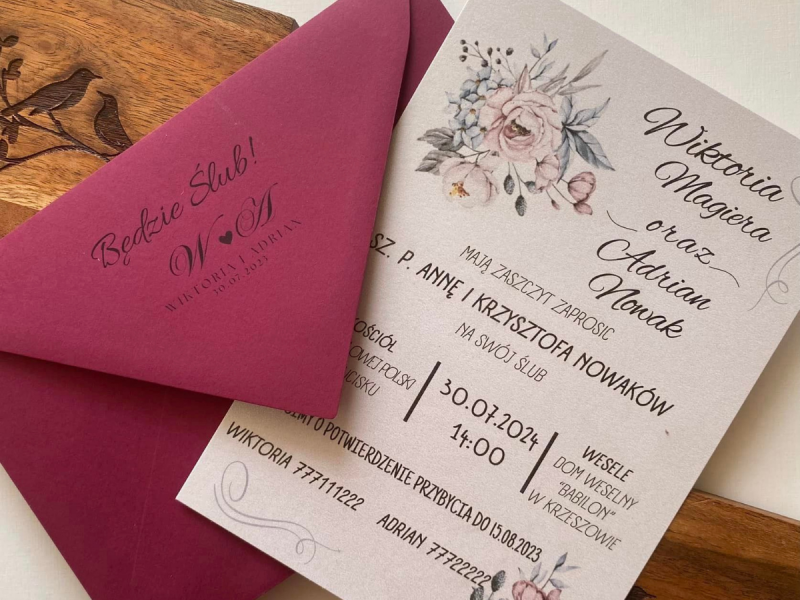 Będzie Ślub!
W A
WIKTORIA I ADRIAN
30.07.2023
Wiktoria
Magiera
oraz
Adrian
Nowak
MAJĄ ZASZCZYT ZAPROSIĆ
SZ. P. ANNĘ I KRZYSZTOFA NOWAKÓW
NA SWÓJ ŚLUB
30.07.2024
14:00
WESELE
DOM WESELNY
"BABILON"
W KRZESZOWIE
O POTWIERDZENIE PRZYBYCIA DO 15.08.2023
WIKTORIA 777111222
ADRIAN 77722222